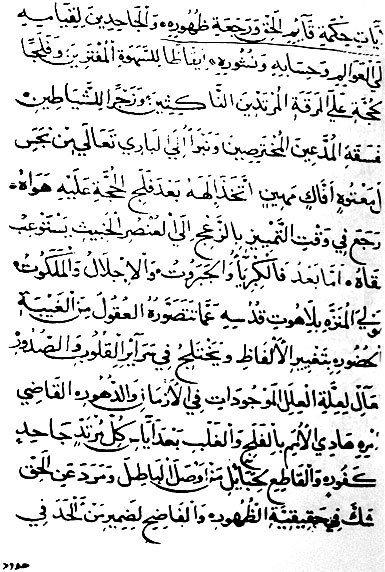 يات حكمة قايم الحق ورجعة ظهوره والجاحدين لقيامه
لي العوالم وحسابه ونشوره ايقاظا للسهوة المغترين وفلجا
لحجة علي المرقة المرتدين الناكثين وزجرا للشياطين
فسقة المدعين المخترصين ونبرأ إلي لباري تعالي من نجس
معتوه افاك مهين اتخذ الهه بعد فلج الحجة عليه هواه
رجع في وقت التمييز بالزعج الي العنصر الخبيث
اما بعد فالكبريا والجبروت والاجلال والملكوت
المنزه بلاهوت قدسه عما تتصوره العقول من الغيبة
الحضور بتغيير الألفاظ ويختلج في سراير القلوب والصدور
عال لعلة العلل الموجودات في الأزمان والدهور القاضي
هادي الأمم بالفلج والغلب بعد كل مرتد جاحد
كفور والقاطع لحبايل من اوصل الباطل ومرد عن الحق
شك في حقيقية الظهور والفاضح لضمير من الحد في